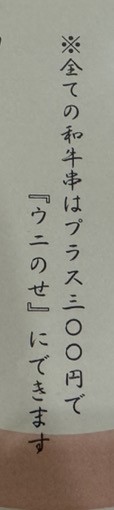 ※全ての和牛串はプラス三〇〇円で
『ウニのせ』にできます